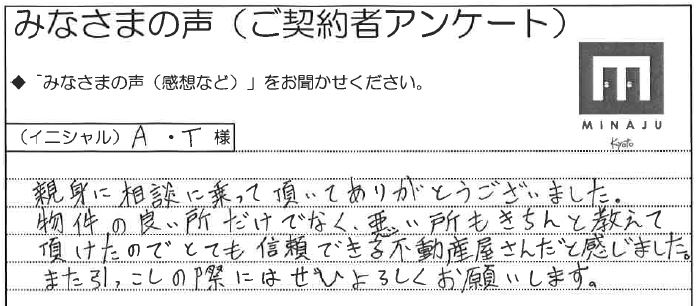 みなさまの声（ご契約者アンケート）
◆「みなさまの声（感想など）」をお聞かせください。
MINAJU
Kyoto
（イニシャル） A ・ T 様
親身に相談に乗って頂いてありがとうございました。
物件の良い所だけでなく、悪い所もきちんと教えて
頂けたのでとても信頼できる不動産屋さんだと感じました。
また引っこしの際にはぜひよろしくお願いします。